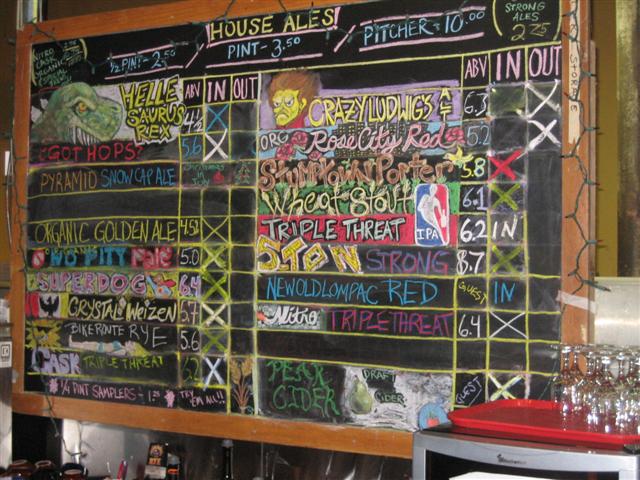 HOUSE ALES
½ PINT - 2.50 / PINT - 3.50 / PITCHER - 10.00
STRONG ALES 2.75
NITRO CASK ORGANIC
ABV IN OUT
HELLE SAURUS REX
GOT HOPS? 5.6
PYRAMID SNOW CAP ALE
ORGANIC GOLDEN ALE 4.5
PITY 5.0
SUPERDOG 6.4
CRYSTAL WEIZEN 5.7
BIKE ROUTE RYE 5.6
CASK TRIPLE THREAT 6.2
¼ PINT SAMPLERS - 1.25 TRY 'EM ALL!!
ABV IN OUT
CRAZY LUDWIG'S ALT 6.3
ORG. Rose City Red 5.2
Stumptown Porter 5.8
Wheat Stout 6.1
TRIPLE THREAT IPA 6.2 IN
STRONG 8.7
NEW OLD LOMPAC RED GUEST IN
Nitro TRIPLE THREAT 6.4
PEAR CIDER DRAFT CIDER GUEST
STORAGE